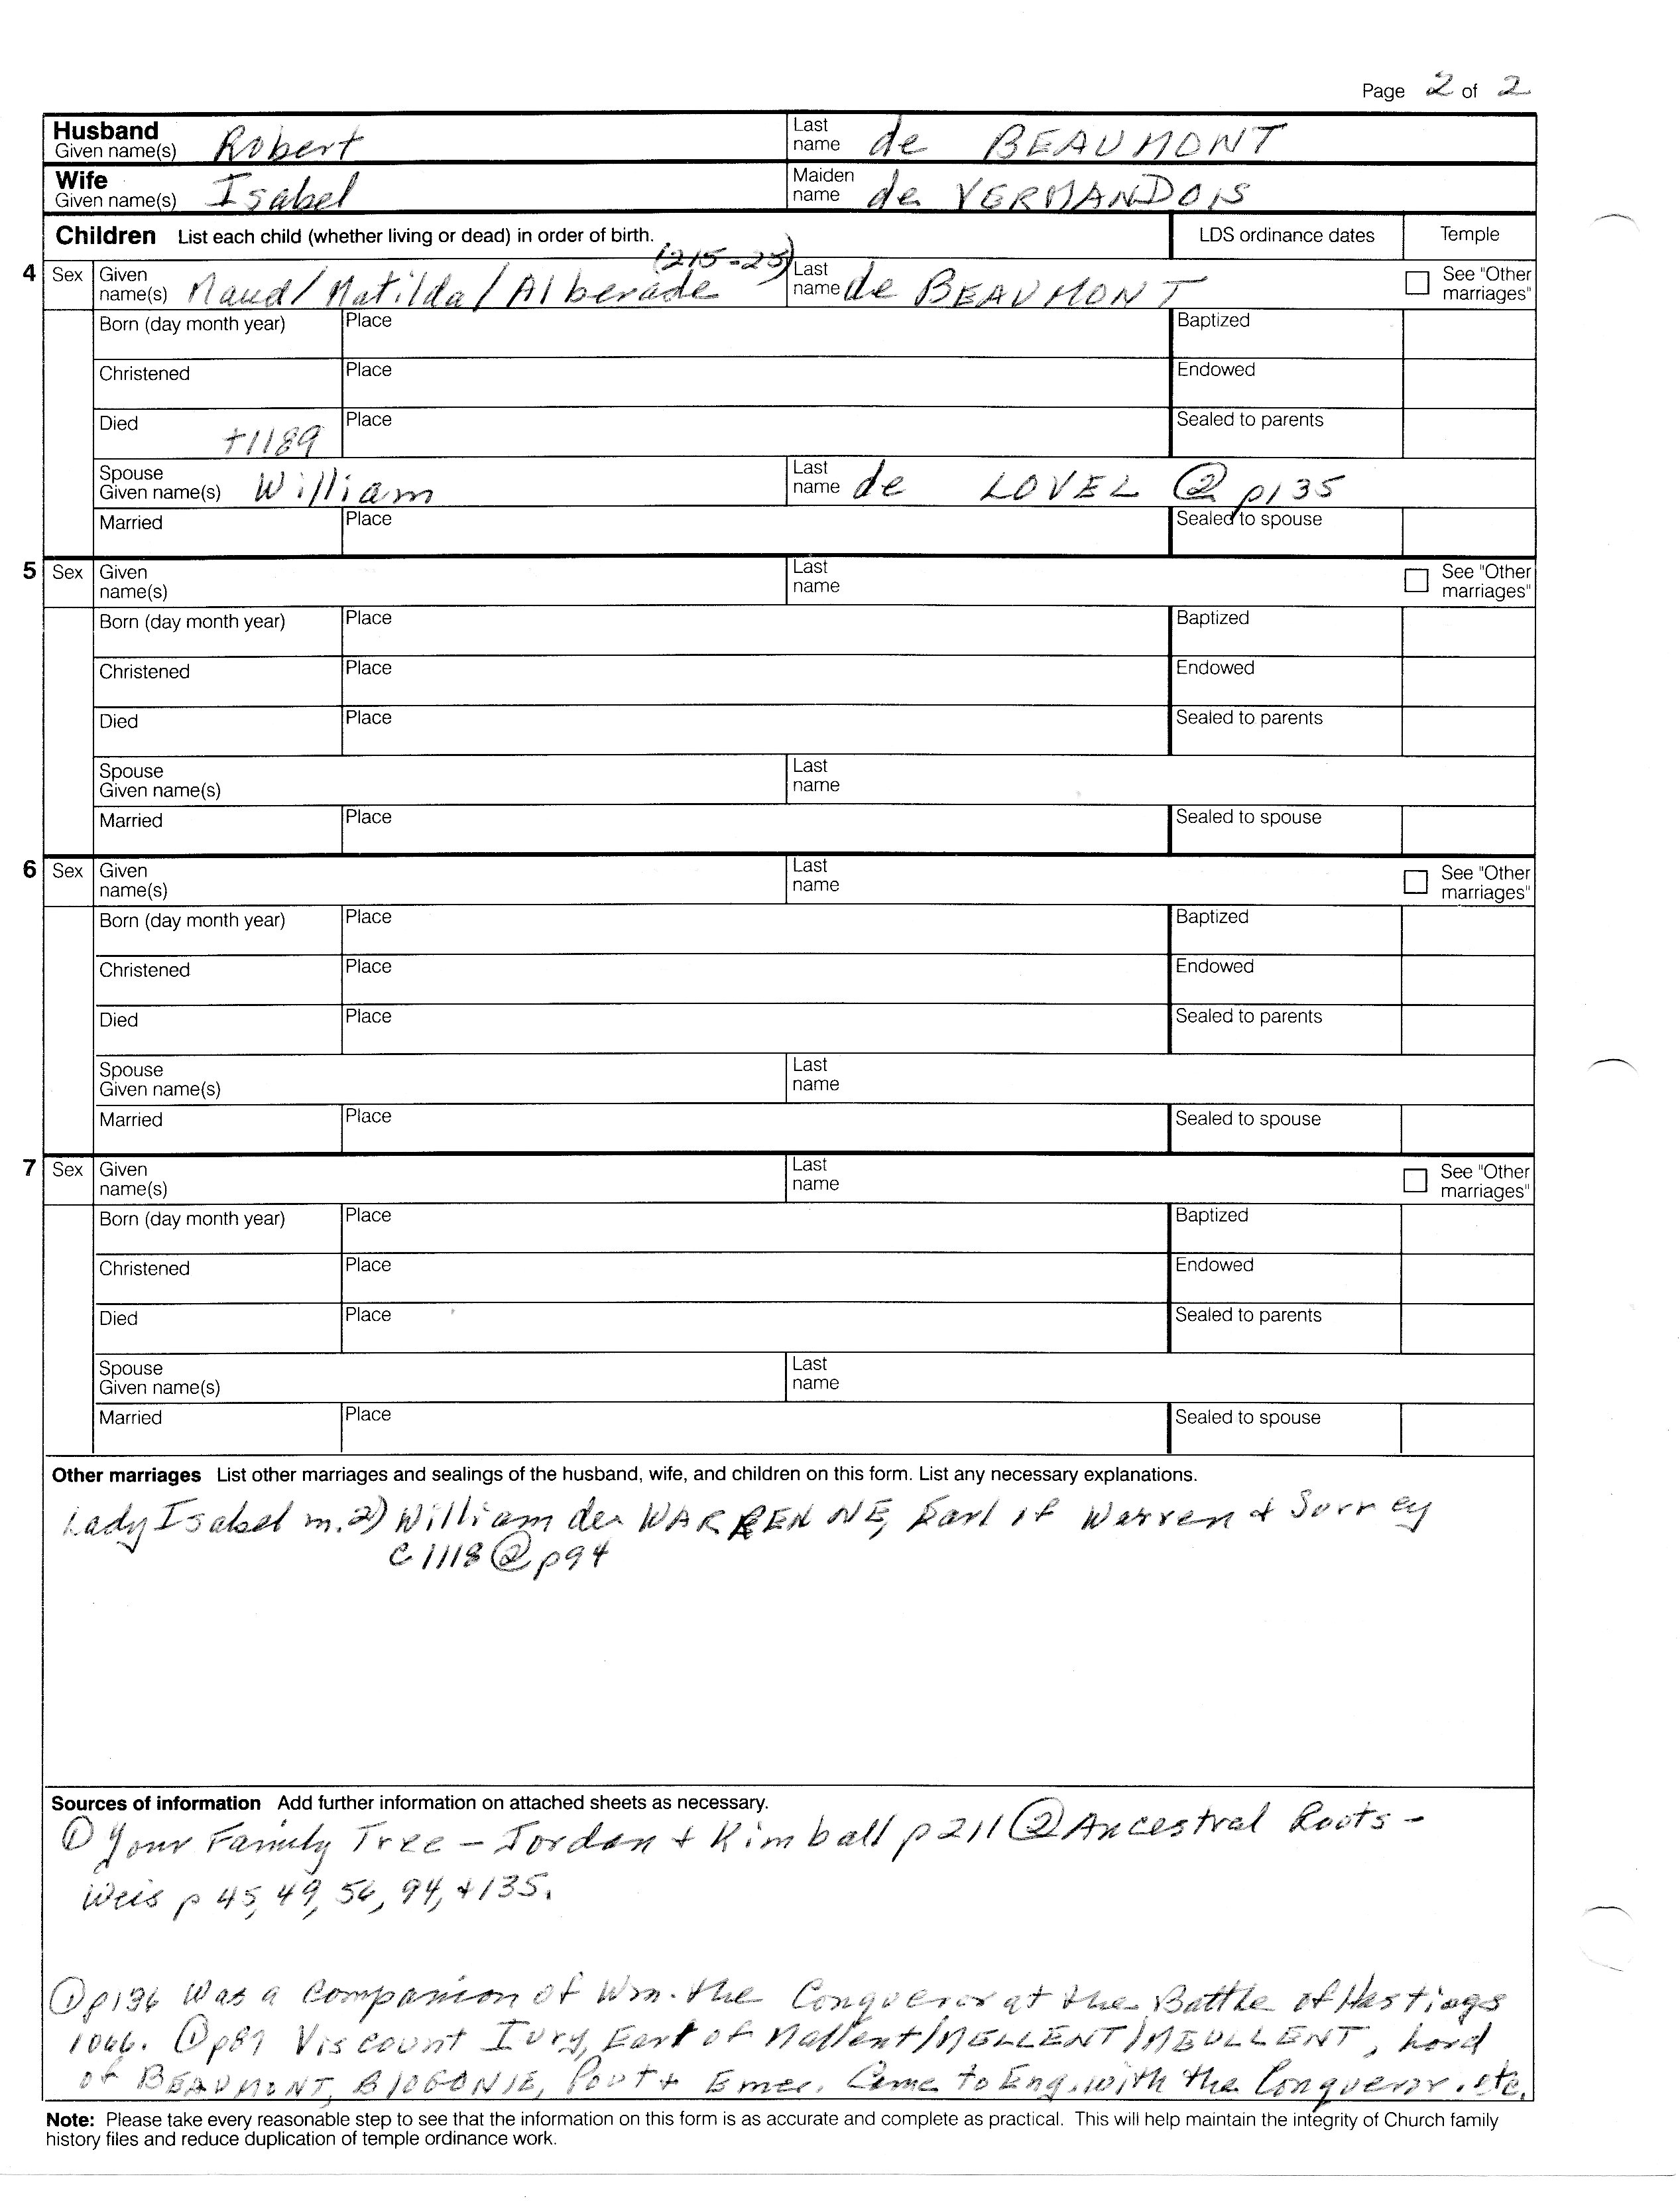 Page 2 of 2
Husband Given name(s) Robert Last name de BEAUMONT
Wife Given name(s) Isabel Maiden name de VERMANDOIS
Children List each child (whether living or dead) in order of birth. LDS ordinance dates Temple
(215-25)
4 Sex Given name(s) Maud/Matilda/Alberade Last name de BEAUMONT See "Other marriages"
Born (day month year) Place Baptized
Christened Place Endowed
Died +1189 Place Sealed to parents
Spouse Given name(s) William Last name de LOVEL ② p135
Married Place Sealed to spouse
5 Sex Given name(s) Last name See "Other marriages"
Born (day month year) Place Baptized
Christened Place Endowed
Died Place Sealed to parents
Spouse Given name(s) Last name
Married Place Sealed to spouse
6 Sex Given name(s) Last name See "Other marriages"
Born (day month year) Place Baptized
Christened Place Endowed
Died Place Sealed to parents
Spouse Given name(s) Last name
Married Place Sealed to spouse
7 Sex Given name(s) Last name See "Other marriages"
Born (day month year) Place Baptized
Christened Place Endowed
Died Place Sealed to parents
Spouse Given name(s) Last name
Married Place Sealed to spouse
Other marriages List other marriages and sealings of the husband, wife, and children on this form. List any necessary explanations.
Lady Isabel m. 2) William de WARRENNE, Earl of Warren & Surrey
c 1118 ② p94
Sources of information Add further information on attached sheets as necessary.
① Your Family Tree - Jordan + Kimball p 211 ② Ancestral Roots -
Weis p 45, 49, 56, 94, + 135.
① p196 Was a Companion of Wm. the Conqueror at the Battle of Hastings
1066. ① p89 Viscount Ivry, Earl of Mallent/MELLENT/MEULLENT, Lord
of BEAUMONT, Pont + Emer. Came to Eng. with the Conqueror. etc.
Note: Please take every reasonable step to see that the information on this form is as accurate and complete as practical. This will help maintain the integrity of Church family
history files and reduce duplication of temple ordinance work.